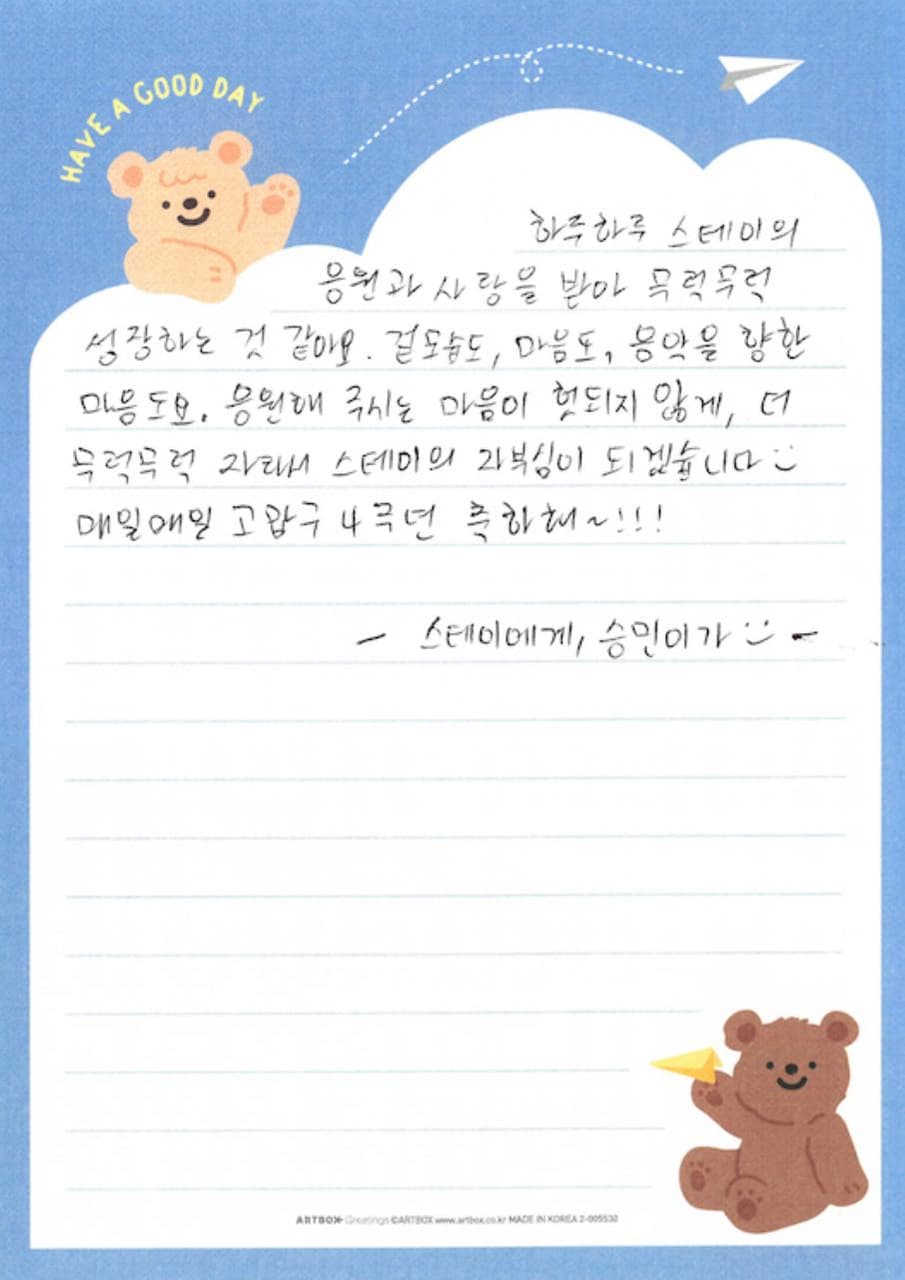 HAVE A GOOD DAY
하루하루 스테이의
응원과 사랑을 받아 무럭무럭
성장하는 것 같아요. 겉모습도, 마음도, 음악을 향한
마음도요. 응원해 주시는 마음이 헛되지 않게, 더
무럭무럭 자라서 스테이의 자부심이 되겠습니다 :)
매일매일 고맙구 4주년 축하해~!!!
- 스테이에게, 승민이가 :) -
ARTBOX Greetings ©ARTBOX www.artbox.co.kr MADE IN KOREA 2-005530